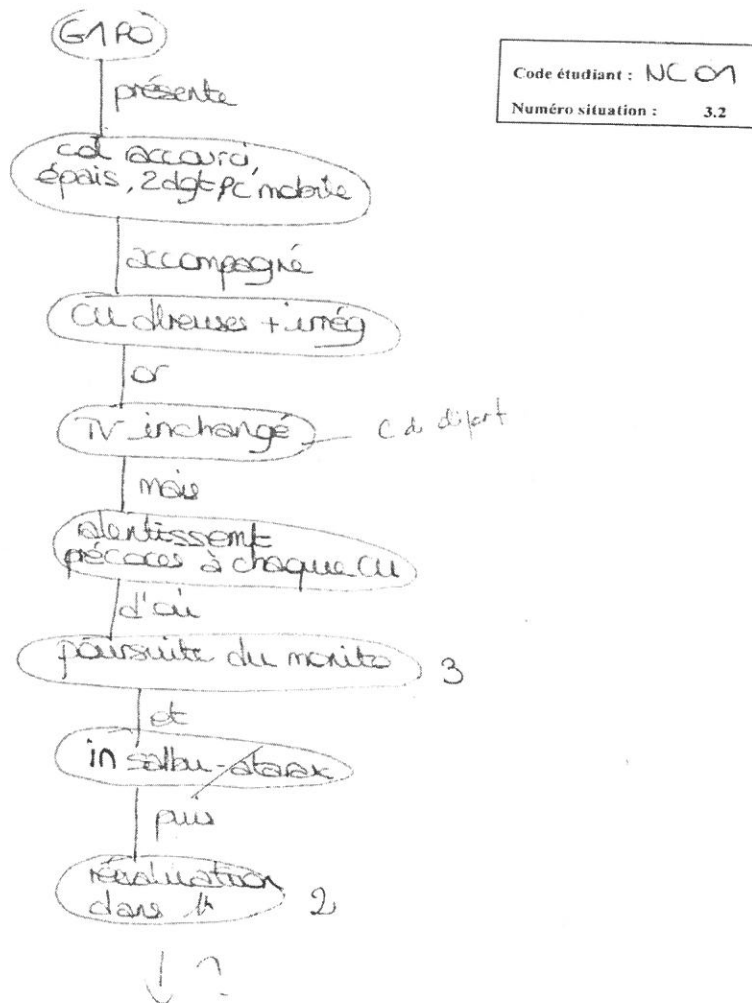 G1P0
Code étudiant : NC01
Numéro situation : 3.2
présente
col raccourci,
épais, 2dgt PC mobile
accompagné
CU dlreuses + irrég
or
TV inchangé
mais
ralentissemt
précoces à chaque CU
d'où
poursuite du monito 3
et
in salbu-atarax
puis
réévaluation
dans 1h 2
?